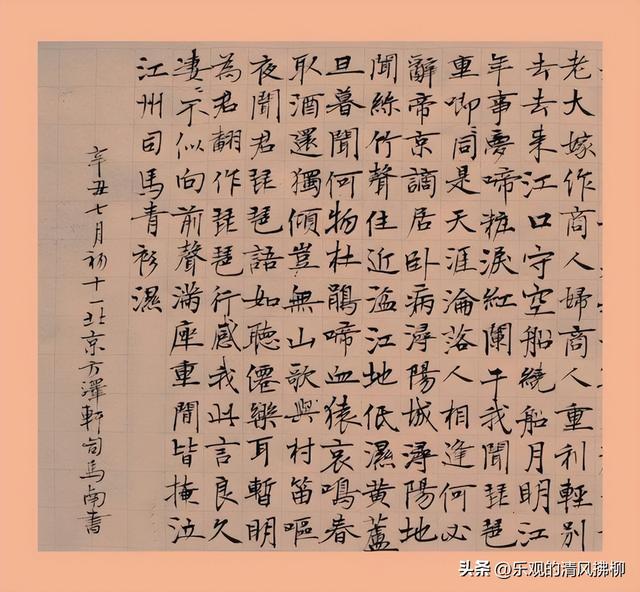 老大嫁作商人婦商人重利輕別
去去来江口守空船繞船月明江
年事夢啼粧淚紅闌干我聞琵琶
重唧〻同是天涯淪落人相逢何必
辭帝京謫居卧病潯陽城潯陽地
聞絲竹聲住近湓江地低濕黄蘆
旦暮聞何物杜鵑啼血猿哀鳴春
取酒還獨傾豈無山歌與村笛嘔
夜聞君琵琶語如聽僊樂耳暫明
為君翻作琵琶行感我此言良久
淒〻不似向前聲滿座重聞皆掩泣
江州司馬青衫濕
辛丑七月初十一北京方澤軒司馬南書
头条 @乐观的清风拂柳